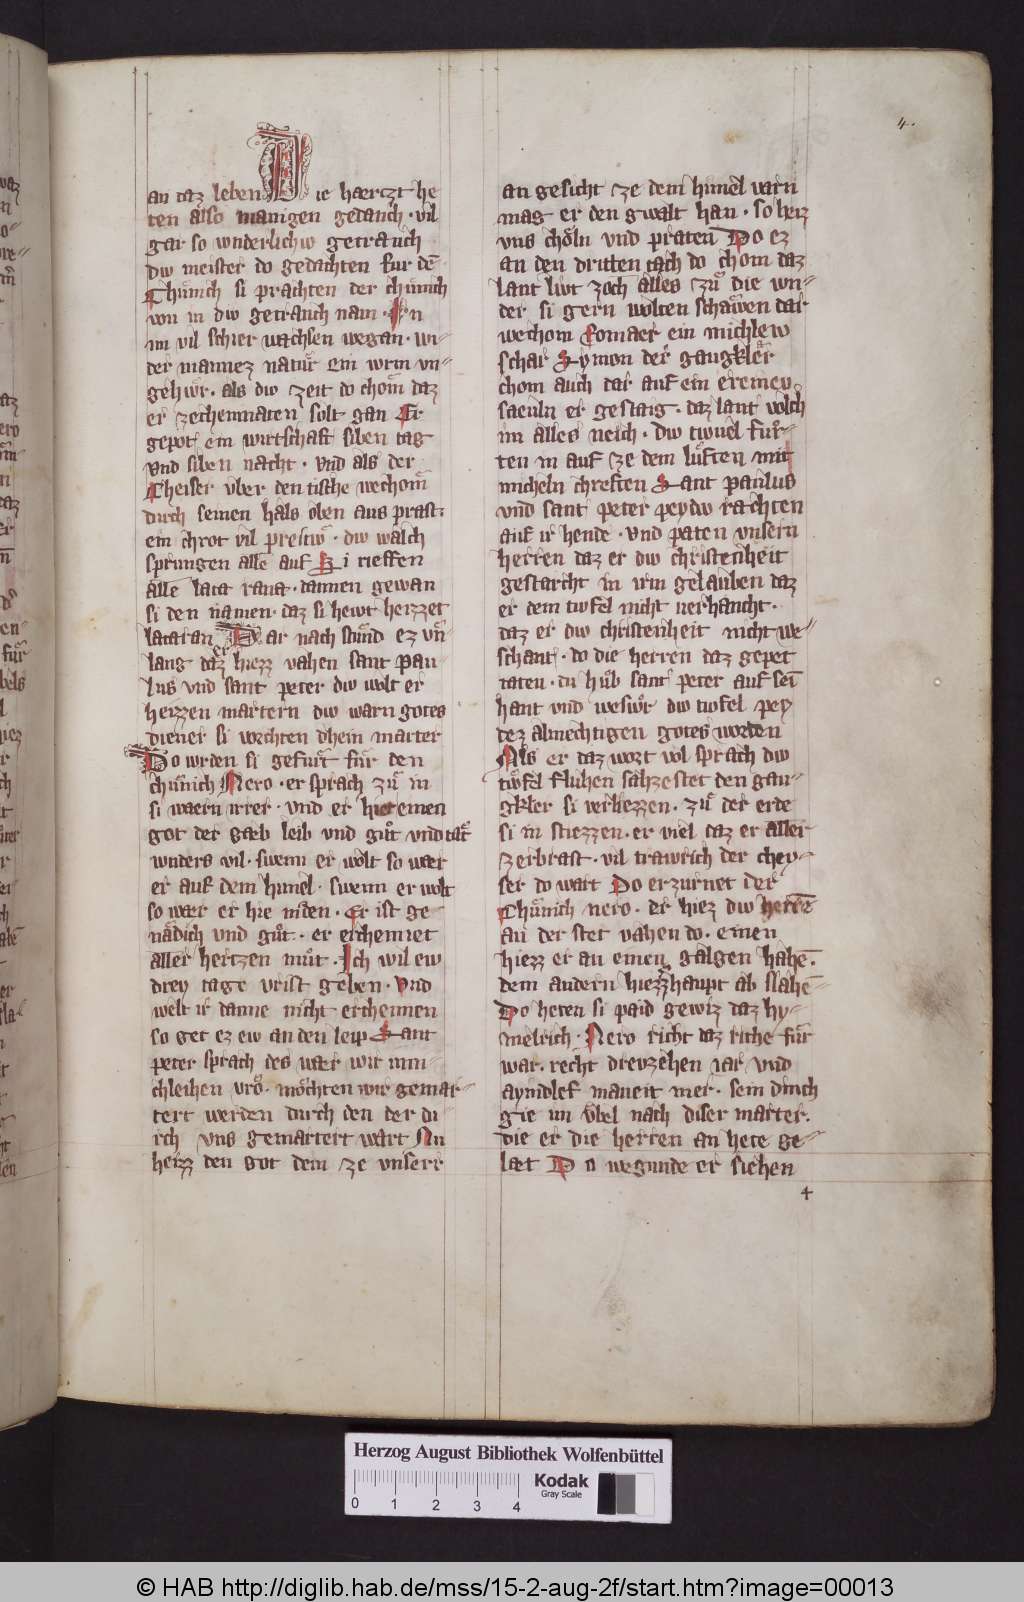 4.
an daz leben Die hærczt he
ten also manigen gedanch · vil
gar so wnderlichiv getranch
div meister do gedachten fur dē
Chůnich si prachten der chůnich
von in div getranch nam · In
im vil schier wachsen wegan · wi-
der mannez natur ein wrm vn-
gehiwr · als div zeit do chom daz
er ze chemnaten solt gan Er
gepot ein wirtschaft siben tag
vnd siben nacht · vnd als der
Cheiser vber den tische wechom
durch seinen hals oben aus prast
ein chrot vil preitiv · div walch
sprungen alle auf Si rieffen
alle lata rana · dannen gewan
si den namen · daz si hewt heizzet
lataran Dar nach stůnd ez vn-
lang daz er hiezz vahen sant pau-
lus vnd sant peter div wolt er
heizzen martern div warn gotes
diener si vorchten dhein marter
Do wrden si gefurt fur den
chůnich Nero · er sprach zů in
si waern irrer · vnd er hiet einen
got der gæb leib vnd gůt vnd tæt
wnders vil · swenn er wolt so wær
er auf dem himel · swenn er wolt
so wær er hie niden · Er ist ge
nådich vnd gůt · er erchennet
aller hertzen můt · Ich wil ew
drey tage vrist geben · Vnd
welt ir danne nicht erchennen
so get ez ew an den leip Sant
peter sprach des wær wir min-
chleihen vro · möchten wir gemar-
tert werden durch den der du-
rch vns gemartert wart Nu
heizz den got dem ze vnserr
an gesicht ze dem himel varn
mag er den gwalt han · so heiz
vns choln vnd praten Do ez
an den dritten tach do chom daz
lant livt zoch alles zů die wn-
der si gern wolten schawen dar
wechom Romaer ein michlew
schar Symon der gaugklær
chom auch dar auf ein eremev
saeuln er gestaig · daz lant volch
im alles neich · div tivuel fur-
ten in auf ze dem luften mit
micheln chreften Sant paulus
vnd sant peter peydiv rachten
auf ir hende · vnd paten vnsern
herren daz er div christenheit
gestarcht in irm gelauben daz
er dem tivfel nicht verhancht ·
daz er div christenheit nicht we-
schant · do die herren daz gepet
taten · du hůb sant peter auf sei
hant vnd weswor div tivfel pey
dez almechtigen gotes worden
Als er daz wort vol sprach div
tivfel fluhen sahzestet den gau-
gkler si verliezzen · zů der erde
si in stiezzen · er viel daz er aller
zerbrast · vil trawrich der chey-
ser do wart Do erzurnet der
Chůnich nero · er hiez div herrē
an der stet vahen do · einen
hiezz er an einen galgen hahē ·
dem andern hiezz haupt ab slahē-
Do heten si paid gewiz daz hy-
melrich · Nero richt daz riche fur
war · recht drevzehen iar vnd
ayndlef maneit mer · sein dinch
gie im vbel nach diser marter ·
die er die herren an hete ge-
læt Do wegunde er siehen
4
Herzog August Bibliothek Wolfenbüttel
Kodak
Gray Scale
0 1 2 3 4
© HAB http://diglib.hab.de/mss/15-2-aug-2f/start.htm?image=00013